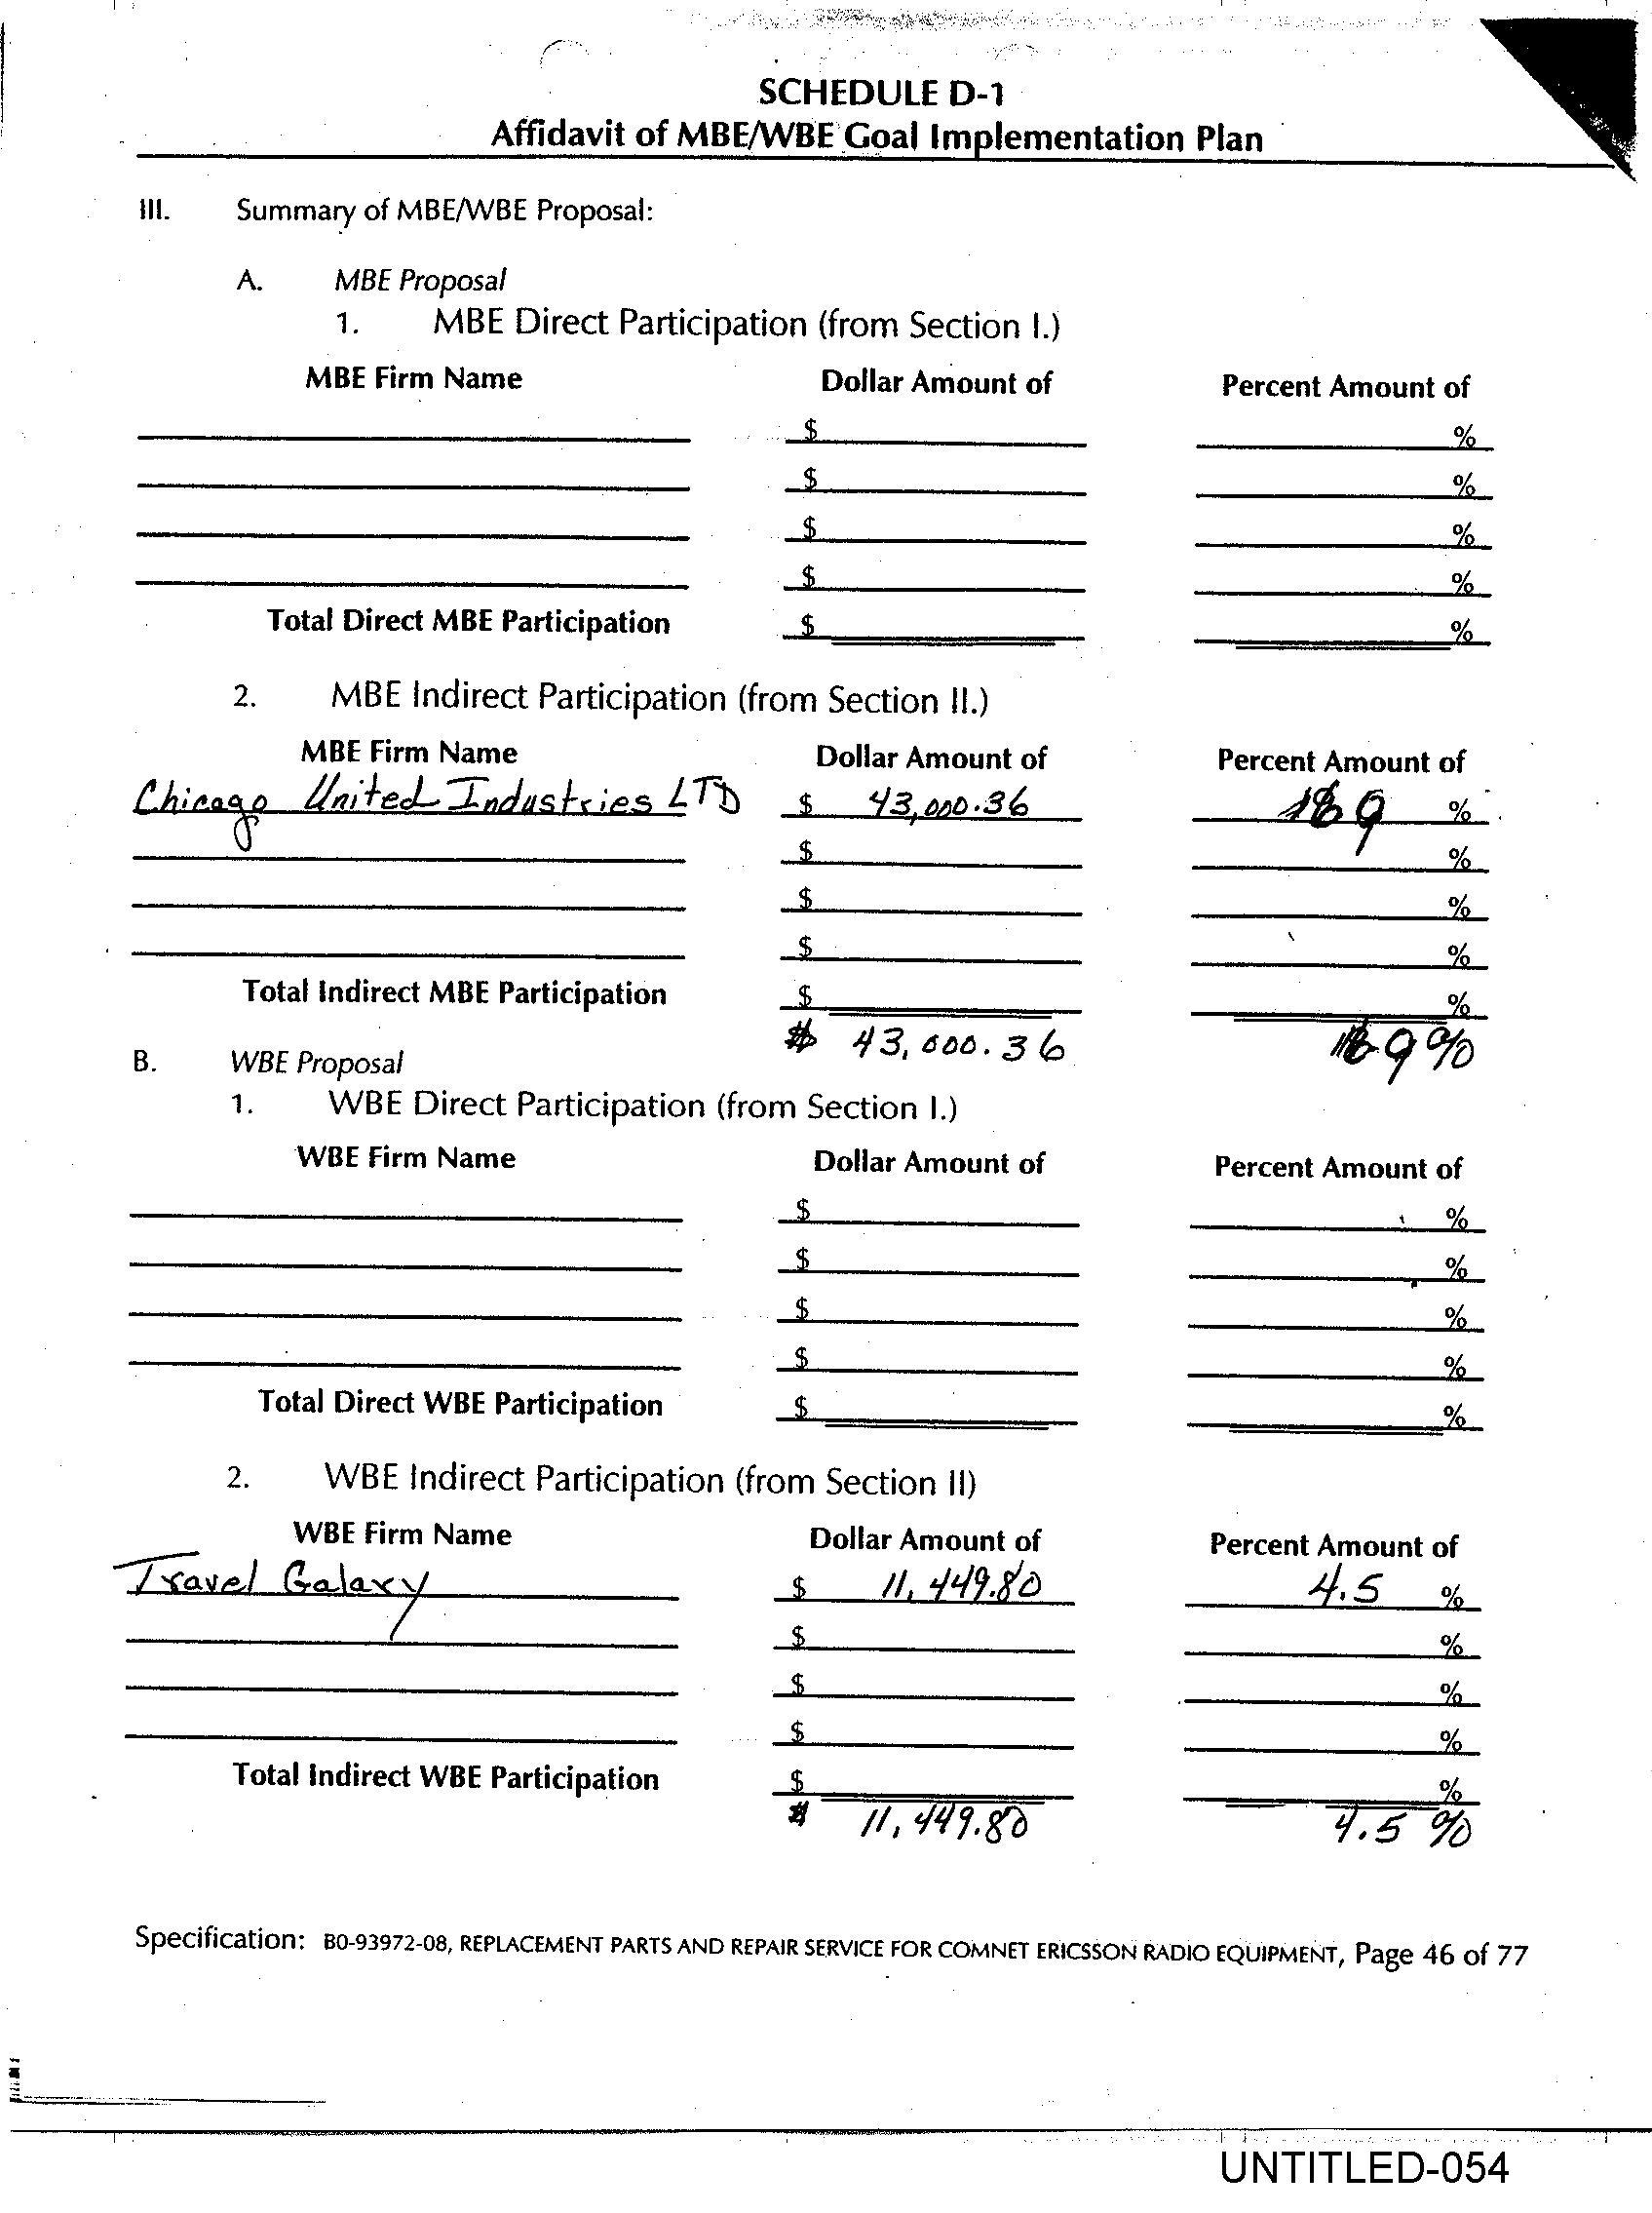 SCHEDULE D-1
Affidavit of MBE/WBE Goal Implementation Plan
III. Summary of MBE/WBE Proposal:
A. MBE Proposal
1. MBE Direct Participation (from Section I.)
MBE Firm Name Dollar Amount of Percent Amount of
$ %
$ %
$ %
$ %
Total Direct MBE Participation $ %
2. MBE Indirect Participation (from Section II.)
MBE Firm Name Dollar Amount of Percent Amount of
Chicago United Industries LTD $ 43,000.36 %
$ %
$ %
$ %
Total Indirect MBE Participation $ %
$ 43,000.36 9%
B. WBE Proposal
1. WBE Direct Participation (from Section I.)
WBE Firm Name Dollar Amount of Percent Amount of
$ %
$ %
$ %
$ %
Total Direct WBE Participation $ %
2. WBE Indirect Participation (from Section II)
WBE Firm Name Dollar Amount of Percent Amount of
Travel Galaxy $ 11,449.80 4.5 %
$ %
$ %
$ %
Total Indirect WBE Participation $ %
$ 11,449.80 4.5 %
Specification: B0-93972-08, REPLACEMENT PARTS AND REPAIR SERVICE FOR COMNET ERICSSON RADIO EQUIPMENT, Page 46 of 77
UNTITLED-054